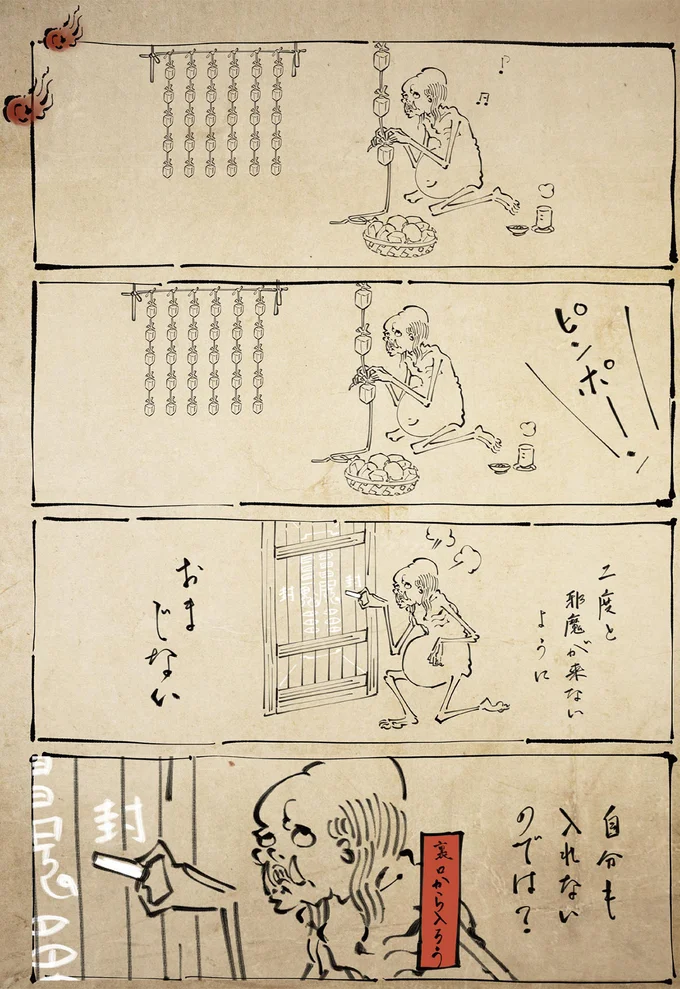 ピンポーン
二度と
邪魔が来ない
ように
おま
じない
自分も
入れない
のでは？
裏口から入ろう
封
封
封